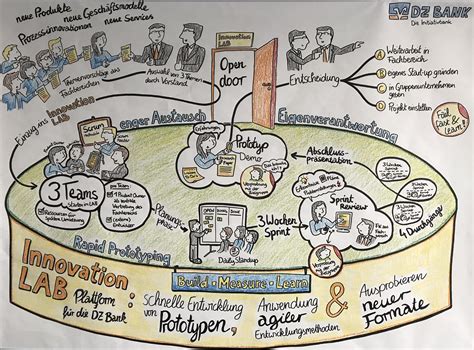 neue Produkte
neue Geschäftsmodelle
Prozessinnovationen
neue Services
DZ BANK
Die Initiativbank
Innovation
LAB
Open
door
Themenvorschläge aus
Fachbereichen
Auswahl von 3 Themen
durch Vorstand
Entscheidung
A Weiterarbeit in
Fachbereich
B eigenes Start-up gründen
C in Gruppenunternehmen
geben
D Projekt einstellen
Fail
fast &
Learn!
Einzug ins Innovation
LAB
enger Austausch
Eigenverantwortung
Scrum
Erfahrungen
Prototyp
Demo
Abschluss-
präsentation
3 Teams
starten im LAB
Ressourcen für
pro Team:
1 Product Owner
Planungs-
phase
3 Wochen
Sprint
Daily Standup
Sprint
Review
4 Durchgänge
Rapid Prototyping
Build · Measure · Learn
Innovation
LAB:
Plattform
für die DZ Bank
schnelle Entwicklung
von Prototypen,
Anwendung
agiler
Entwicklungsmethoden
&
Ausprobieren
neuer
Formate